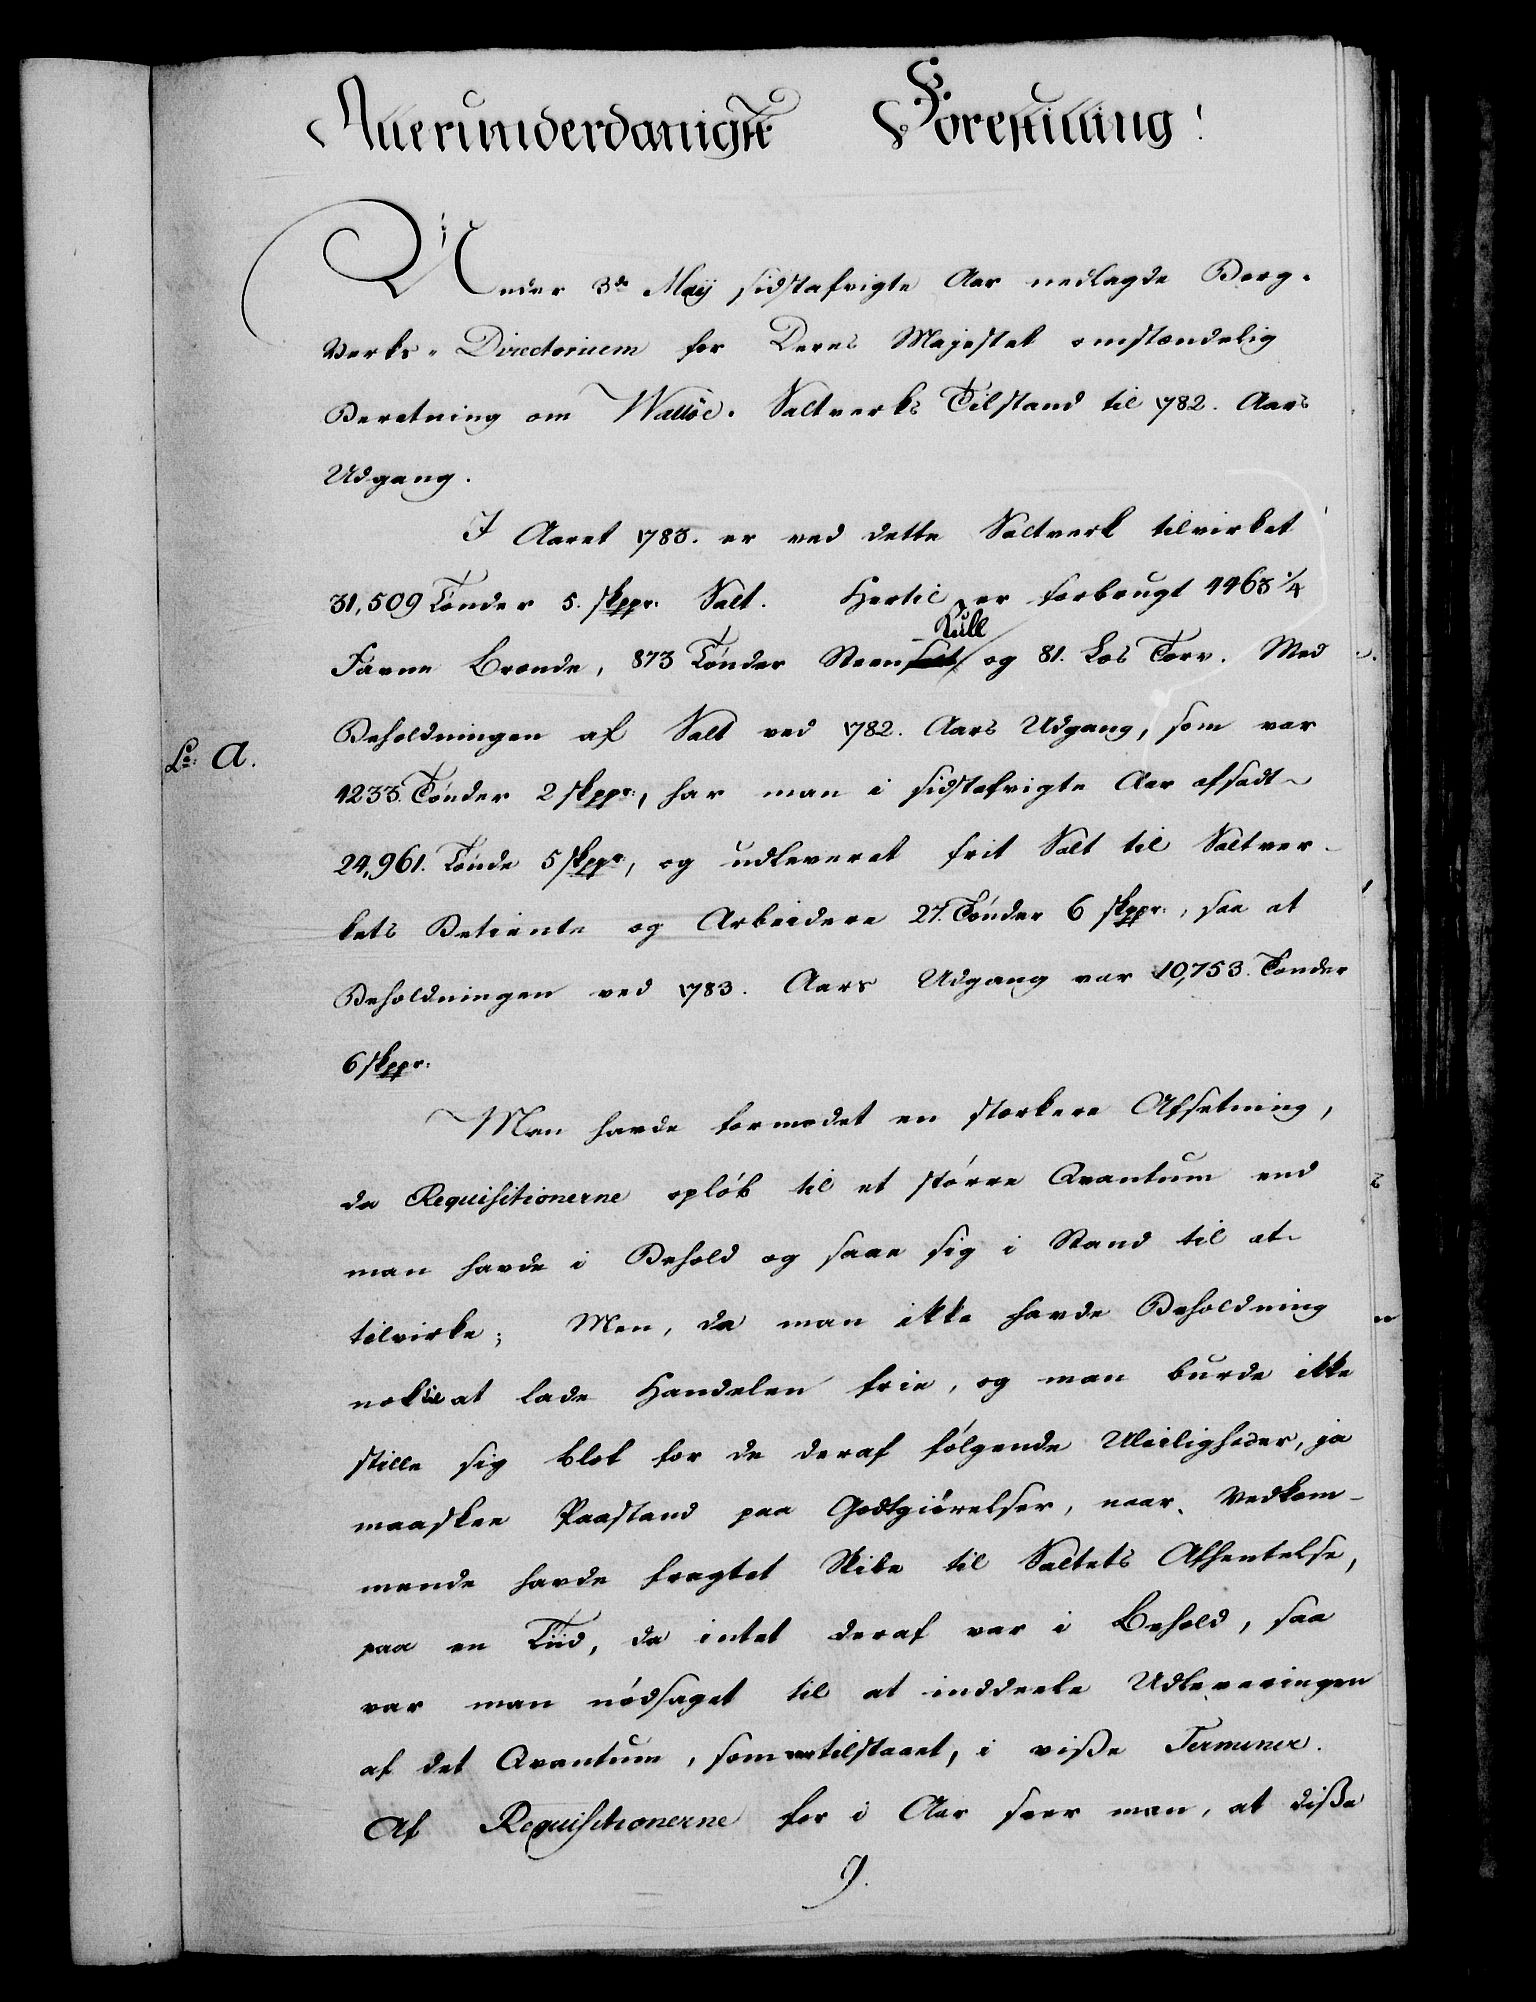 Allerunderdanigste Forestilling!
Under 3de Maij sidstafvigte Aar nedlagde Berg-
Verks-Directorium for Deres Majestæt omstændelig
Beretning om Walløe-Saltverks Tilstand til 1782. Aars
Udgang.
I Aaret 1783. er ved dette Saltverk tilvirket
31,509 Tønder 5. skppr. Salt. Hertil er forbrugt 4463 1/4
Kull
Favne Brænde, 873 Tønder Steensalt og 81. Læs Torv. Med
Beholdningen af Salt ved 1782. Aars Udgang, som var
La: A.
4233. Tønder 2 skppr:, har man i sidstafvigte Aar afsadt
24,961. Tønde 5 skppr, og udleveret frit Salt til Saltver-
kets Betiente og Arbeidere 27. Tønder 6 skppr:, saa at
Beholdningen ved 1783. Aars Udgang var 10,753. Tønder
6 skppr:
Man havde formodet en stærkere Afsetning,
da Requisitionerne opløb til et større Qvantum end
man havde i Behold og saae sig i Stand til at
tilvirke; Men, da man ikke havde Beholdning
nok til at lade Handelen frie, og man burde ikke
stille sig blot for de deraf følgende Uleiligheder, ja
maaskee Paastand paa Godtgiørelser, naar Vedkom-
mende havde fragtet Skibe til Saltets Afhentelse,
paa en Tiid, da intet deraf var i Behold, saa
var man nødsaget til at inddeele Udleveringen
af det Qvantum, som var tilstaaet, i visse Terminer.
Af Requisitionerne for i Aar seer man, at disse